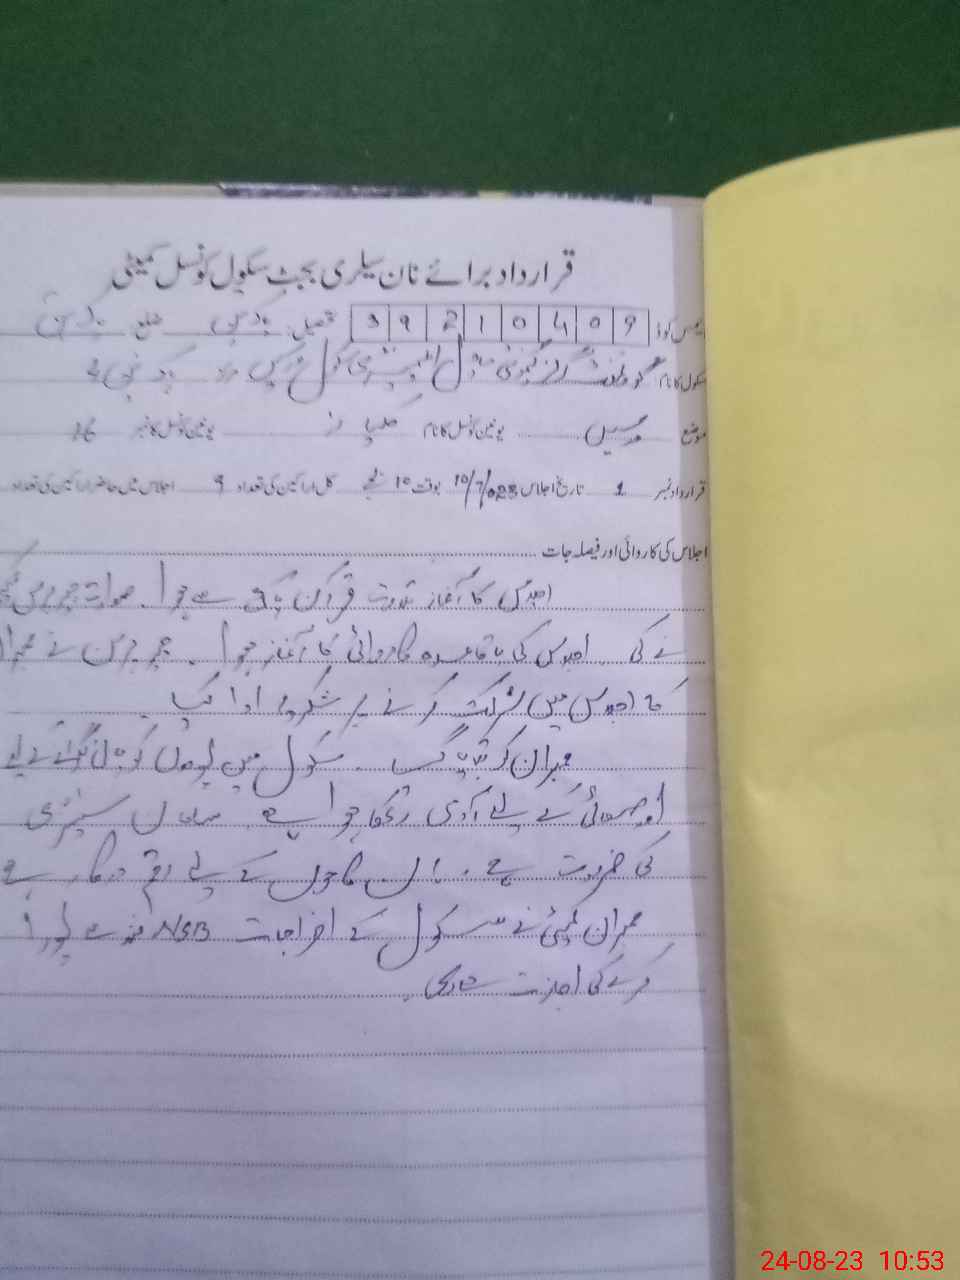 قرارداد برائے نان سیلری بجٹ سکول کونسل کمیٹی
ایمس کوڈ 3 9 2 1 0 4 0 9 تحصیل ضلع
سکول کا نام گورنمنٹ گرلز کمیونٹی ماڈل ایلیمنٹری سکول
موضع یونین کونسل کا نام یونین کونسل کا نمبر 16
قرارداد نمبر 1 تاریخ اجلاس 10/7/023 بوقت 10 بجے کل اراکین کی تعداد 9 اجلاس میں حاضر اراکین کی تعداد
اجلاس کی کاروائی اور فیصلہ جات
اجلاس کا آغاز تلاوت قرآن پاک سے ہوا۔ صدارت چیئرمین
نے کی۔ اجلاس کی باقاعدہ کاروائی کا آغاز ہوا۔ چیئرمین نے
کا اجلاس میں شرکت کرنے پر شکریہ ادا کیا۔
ممبران کو بتایا گیا۔ سکول میں پودوں کو پانی لگانے کے لیے
اور صفائی کے لیے آدمی رکھا ہوا ہے۔ سامان سٹیشنری
کی ضرورت ہے۔ ان کاموں کے لیے رقم درکار ہے
ممبران کمیٹی نے سکول کے اخراجات NSB فنڈ سے پورا
کرنے کی اجازت دے دی۔
24-08-23 10:53